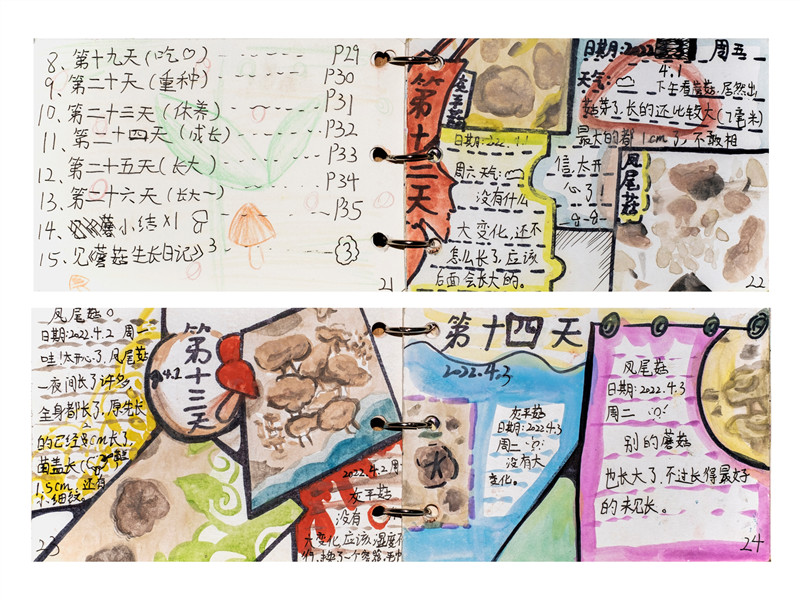 8、第十九天(吃♡) P29
9、第二十天(重种) P30
10、第二十三天(休养) P31
11、第二十四天(成长) P32
12、第二十五天(长大) P33
13、第二十六天(长大~) P34
14、小结×1 P35
15、见《蘑菇生长日记》3 ③
21
第十三天
灰平菇
日期:2022.4.1
周六 天气:
没有什么
大变化,还不
怎么长了,应该
后面会长大的。
日期:2022.4.1 周五
天气: 下午看蘑菇,居然出
菇芽了,长的还比较大(7毫米)
最大的都1cm了,不敢相
信,太开
心了!
凤尾菇
22
凤尾菇
日期:2022.4.2 周一
哇!太开心了,凤尾菇
一夜间长了许多,
全身都长了,原先长
的已经2cm长了,
菌盖长
1.5cm,还有
小细纹。
23
第十三天
4.2
2022.4.2 周
灰平菇
没有
大变化,应该湿度不
第十四天
2022.4.3
灰平菇
日期:2022.4.3
周二
没有大
变化。
凤尾菇
日期:2022.4.3
周二
别的蘑菇
也长大了,不过长得最好
的未见长。
24